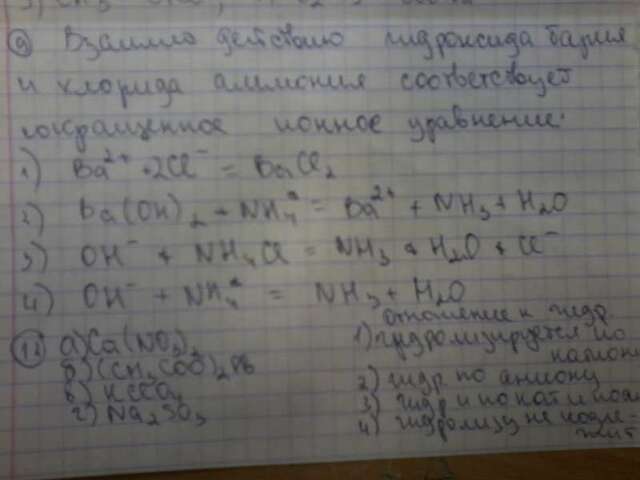 9) Взаимо действию гидроксида бария
и хлорида аммония соответствует
сокращенное ионное уравнение:
1) Ba²⁺ + 2Cl⁻ = BaCl₂
2) Ba(OH)₂ + NH₄⁺ = Ba²⁺ + NH₃ + H₂O
3) OH⁻ + NH₄Cl = NH₃ + H₂O + Cl⁻
4) OH⁻ + NH₄⁺ = NH₃ + H₂O
а) Ca(NO₃)₂
б) (CH₃COO)₂Pb
в)
г) Na₂SO₃
отношение к гидр
1) гидролизируется по
катион
2) гидр по аниону
3) гидр и по кат и по ан
4) гидролизу не подле-
жит